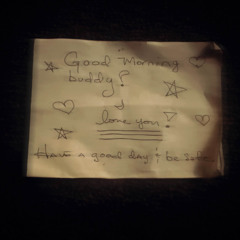 Good Morning
buddy!
I
love you!
Have a good day & be safe